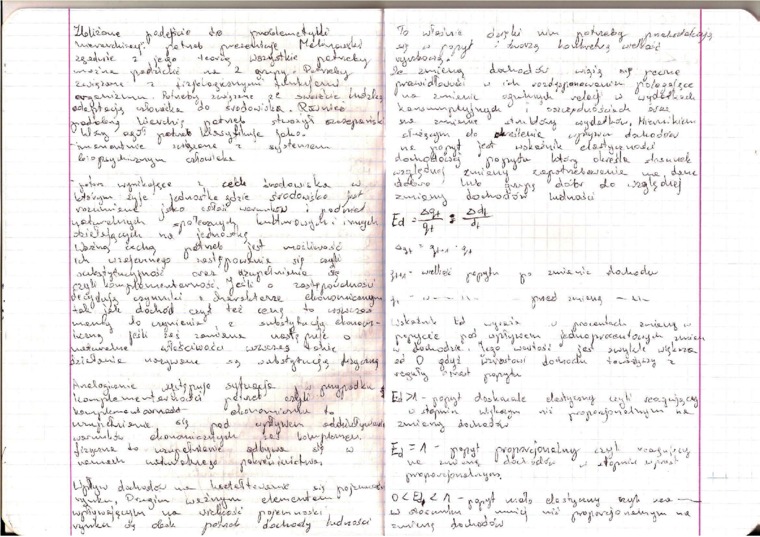 Zbliżone podejście do problematyki
hierarchizacji potrzeb prezentuje Malinowski
zgodnie z jego teorią wszystkie potrzeby
można podzielić na 2 grupy. Potrzeby
związane z fizjologicznymi funkcjami
organizmu. Potrzeby związane ze
adaptacją człowieka do środowiska. Również
podobną hierchię potrzeb stworzył Szczepański
Wszy część potrzeb klasyfikuje jako
immanentnie związane z systemem
biopsychicznym człowieka
- potrz wynikające z cech środowiska w
którym żyje jednostka gdzie środowisko jest
rozumiane jako całość warunków i podniet
naturalnych społecznych kulturowych i innych
działających na jednostkę
Ważną cechą potrzeb jest możliwość
ich wzajemnego zastępowania się czyli
substytucyjność oraz uzupełniania się
czyli komplementarność. Jeśli o zastępowalności
decydują czynniki o charakterze ekonomicznym
tak jak dochód czyt też cena to wówczas
mamy do czynienia z substytucją ekonom-
iczną jeśli zaś zamiana następuje o
naturalne właściwości wówczas takie
działanie nazywane są substytucją
Analogicznie występuje sytuacja w przypadku
komplementarności potrzeb czyli
komplementarność ekonomiczna to
uzupełnianie się pod wpływem oddziaływania
warunków ekonomicznych zaś komplemen.
fizyczna to uzupełnianie odbywa się w
ramach naturalnego
Wpływ dochodów na kształtowanie się pojemności
rynku. Drugim ważnym elementem
wpływającym na wielkość pojemności
rynku są obok potrzeb dochody ludności
To właśnie dzięki nim potrzeby przekształcają
się w popyt i tworzą konkretną wielkość
rynkową.
Ze zmianą dochodów wiążą się pewne
prawidłowości w ich rozdysponowaniu polegające
na zmianie ogólnych relacji w wydatkach
konsumpcyjnych i oszczędnościach oraz
na zmianie struktury wydatków. Miernikiem
służącym do określenie wpływu dochodów
na popyt jest wskaźnik elastyczności
dochodowej popytu który określa stosunek
względnej zmiany zapotrzebowania na dane
dobro lub grupę dóbr do względnej
zmiany dochodów ludności
Ed = Δqt/qt : Δdt/dt
Δqt = qt+1 - qt
qt+1 - wielkość popytu po zmianie dochodu
qt - -"- -"- przed zmianą -"-
Wskaźnik ten wyraża w procentach zmianę w
popycie pod wpływem jednoprocentowych zmian
w dochodzie. Jego wartość jest zwykle większa
od 0 gdyż wzrostowi dochodu towarzyszy z
reguły wzrost popytu
Ed > 1 - popyt doskonale elastyczny czyli reagujący
w stopniu większym niż proporcjonalnym na
zmianę dochodów
Ed = 1 - popyt proporcjonalny czyli reagujący
na zmianę dochodów w stopniu wprost
proporcjonalnym
0 < Ed < 1 - popyt mało elastyczny czyli rea
w stosunku mniej niż proporcjonalnym na
zmianę dochodów